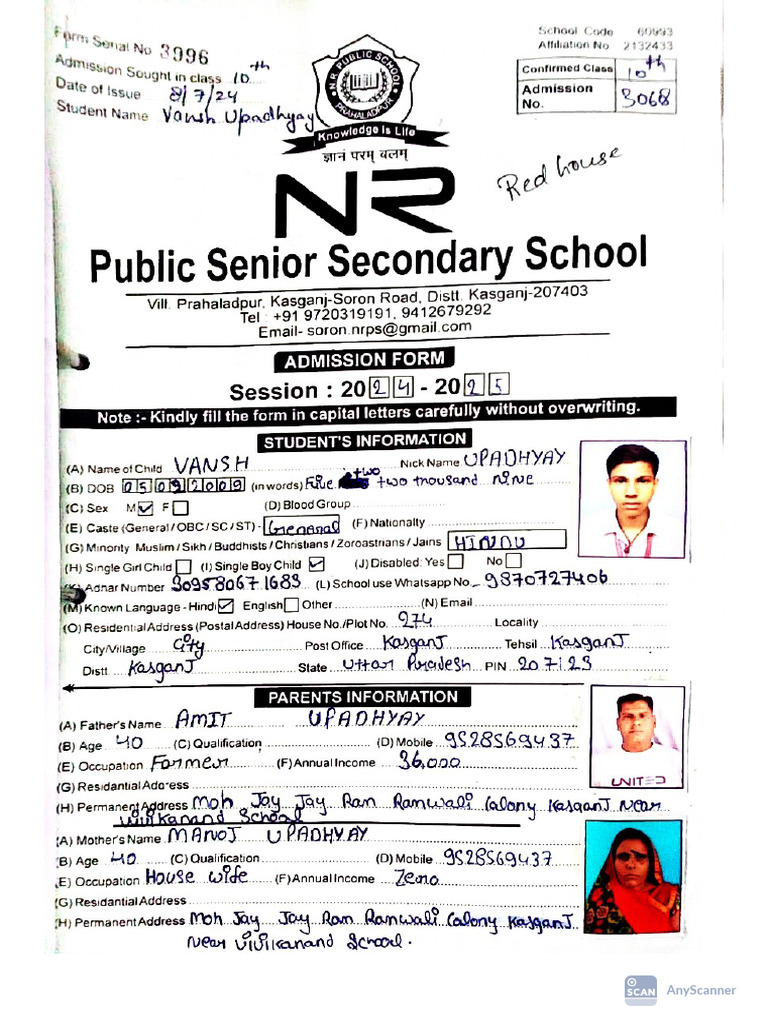 Form Serial No 3996
Admission Sought in class 10th
Date of Issue 8/7/24
Student Name Vansh Upadhyay
School Code 60993
Affiliation No 2132433
Confirmed Class 10th
Admission No. 3068
N.R. PUBLIC SCHOOL
PRAHALADPUR
Knowledge is Life
ज्ञानं परम् बलम्
Red house
NR
Public Senior Secondary School
Vill. Prahaladpur, Kasganj-Soron Road, Distt. Kasganj-207403
Tel : +91 9720319191, 9412679292
Email- soron.nrps@gmail.com
ADMISSION FORM
Session : 2024 - 2025
Note :- Kindly fill the form in capital letters carefully without overwriting.
STUDENT'S INFORMATION
(A) Name of Child VANSH Nick Name UPADHYAY
(B) DOB 05092009 (in words) Five two thousand nine
two
(C) Sex M F (D) Blood Group
(E) Caste (General / OBC / SC / ST) - General (F) Nationally
(G) Minority Muslim / Sikh / Buddhists / Christians / Zoroastrians / Jains HINDU
(H) Single Girl Child (I) Single Boy Child (J) Disabled: Yes No
Adhar Number 309580671683 (L) School use Whatsapp No. 9870727406
(M) Known Language - Hindi English Other (N) Email
(O) Residential Address (Postal Address) House No./Plot No. 274 Locality
City/Village City Post Office KasganJ Tehsil KasganJ
Distt. KasganJ State Uttar Pradesh PIN 207123
PARENTS INFORMATION
(A) Father's Name AMIT UPADHYAY
(B) Age 40 (C) Qualification (D) Mobile 9528569437
(E) Occupation Farmer (F) Annual Income 36,000
(G) Residantial Address
(H) Permanent Address Moh Jay Jay Ram Ramwali Colony KasganJ Near
Vivikanand School
UNITED
(A) Mother's Name MANOJ UPADHYAY
(B) Age 40 (C) Qualification (D) Mobile 9528569437
(E) Occupation House wife (F) Annual Income Zero
(G) Residantial Address
(H) Permanent Address Moh Jay Jay Ram Ramwali Colony KasganJ
Near Vivikanand School.
SCAN AnyScanner